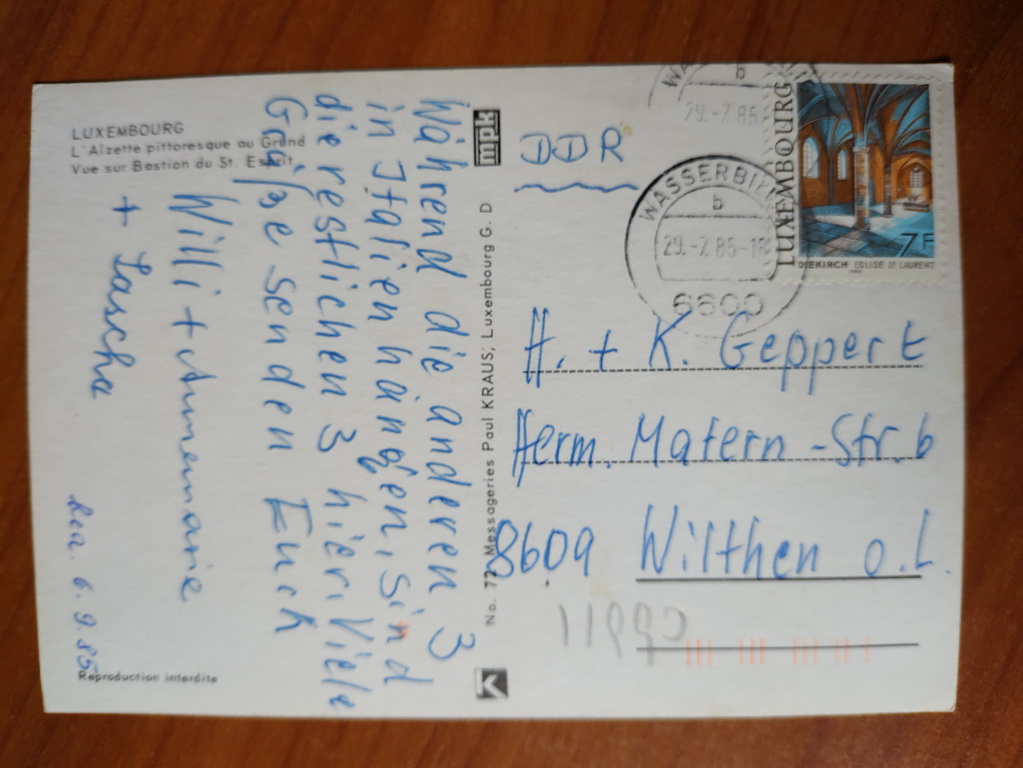 LUXEMBOURG
L'Alzette pittoresque au Grund
Vue sur Bastion du St. Esprit
Während die anderen 3
in Italien hängen, sind
die restlichen 3 hier. Viele
Grüße senden Euch
Willi + Annemarie
+ Sascha
6.9.85
Reproduction interdite
mpk
No. 72 Messageries Paul KRAUS, Luxembourg G. D
K
DDR
WASSERBILLIG
b
29.-7.85
6600
LUXEMBOURG
7F
DIEKIRCH EGLISE ST LAURENT
H. + K. Geppert
Herm. Matern-Str. 6
8609 Wilthen o.L.